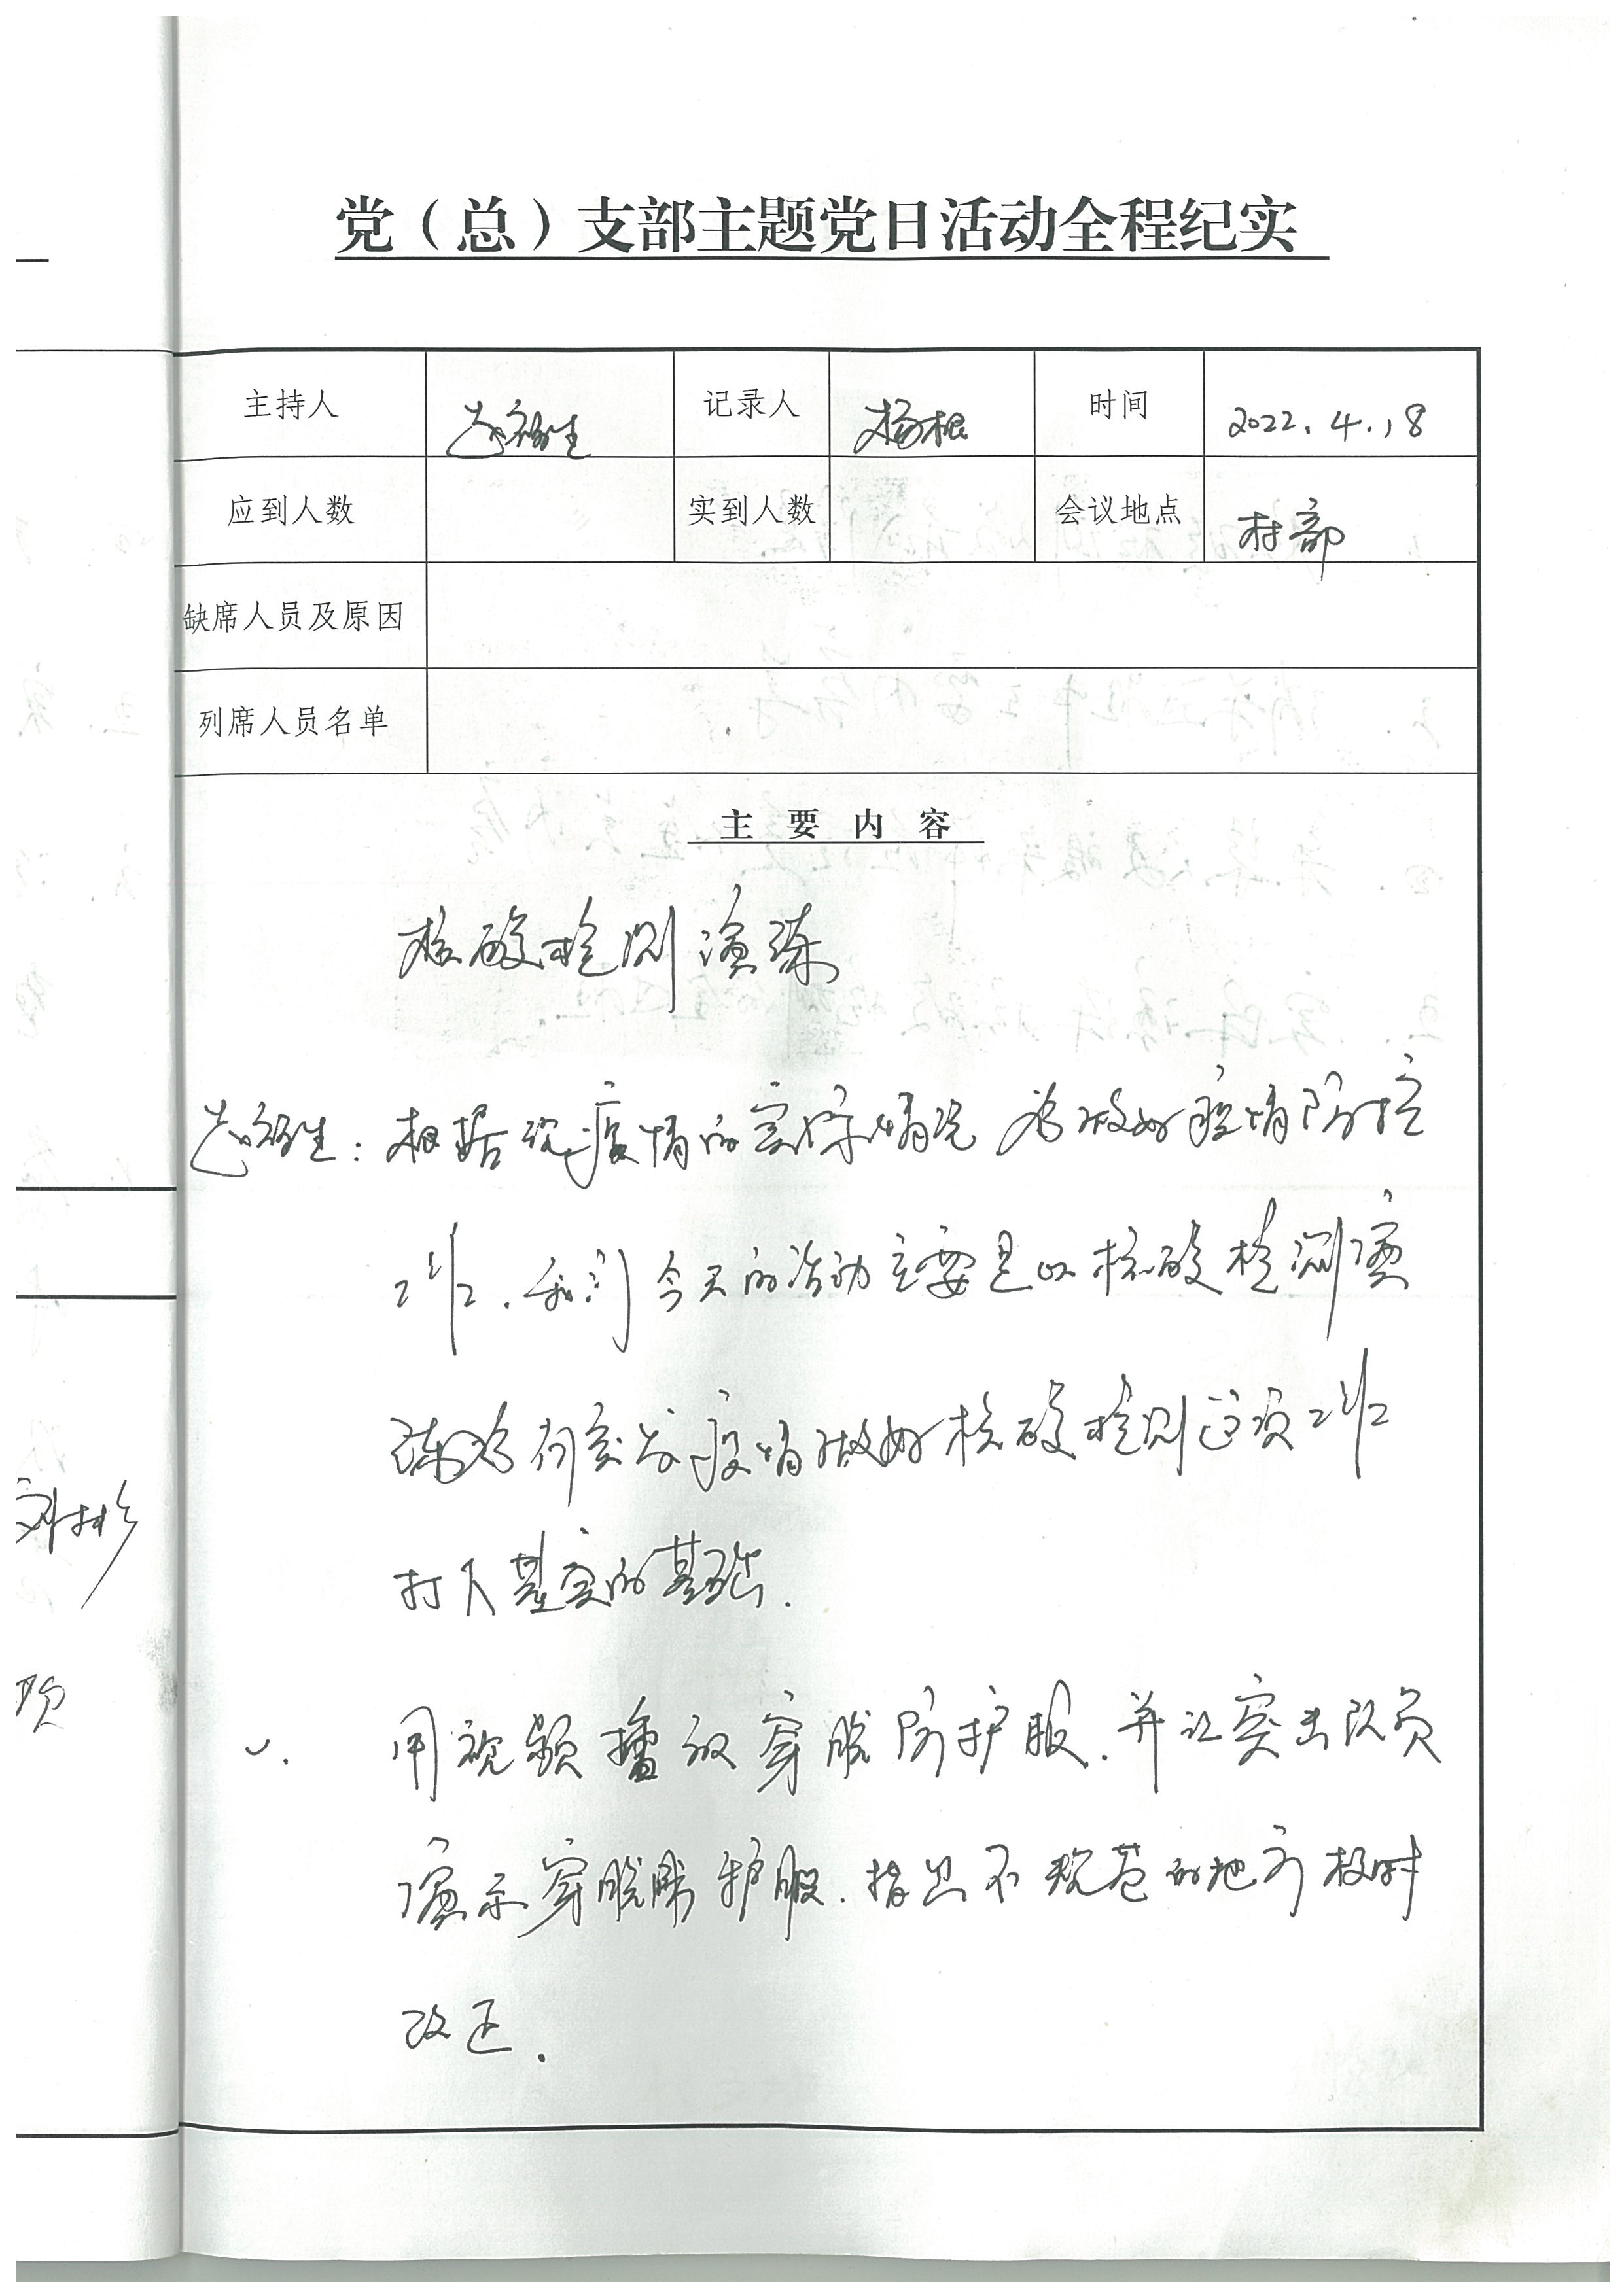 党（总）支部主题党日活动全程纪实
主持人 记录人 杨根 时间 2022.4.18
应到人数 实到人数 会议地点 村部
缺席人员及原因
列席人员名单
主要内容
核酸检测演练
根据现疫情的实际情况 为做好疫情防控
工作.我们今天的活动主要是以核酸检测演
练为何突发疫情做好核酸检测这项工作
打下坚实的基础.
用视频播放穿脱防护服.并让突击队员
演示穿脱防护服.指出不规范的地方及时
改正.
刘